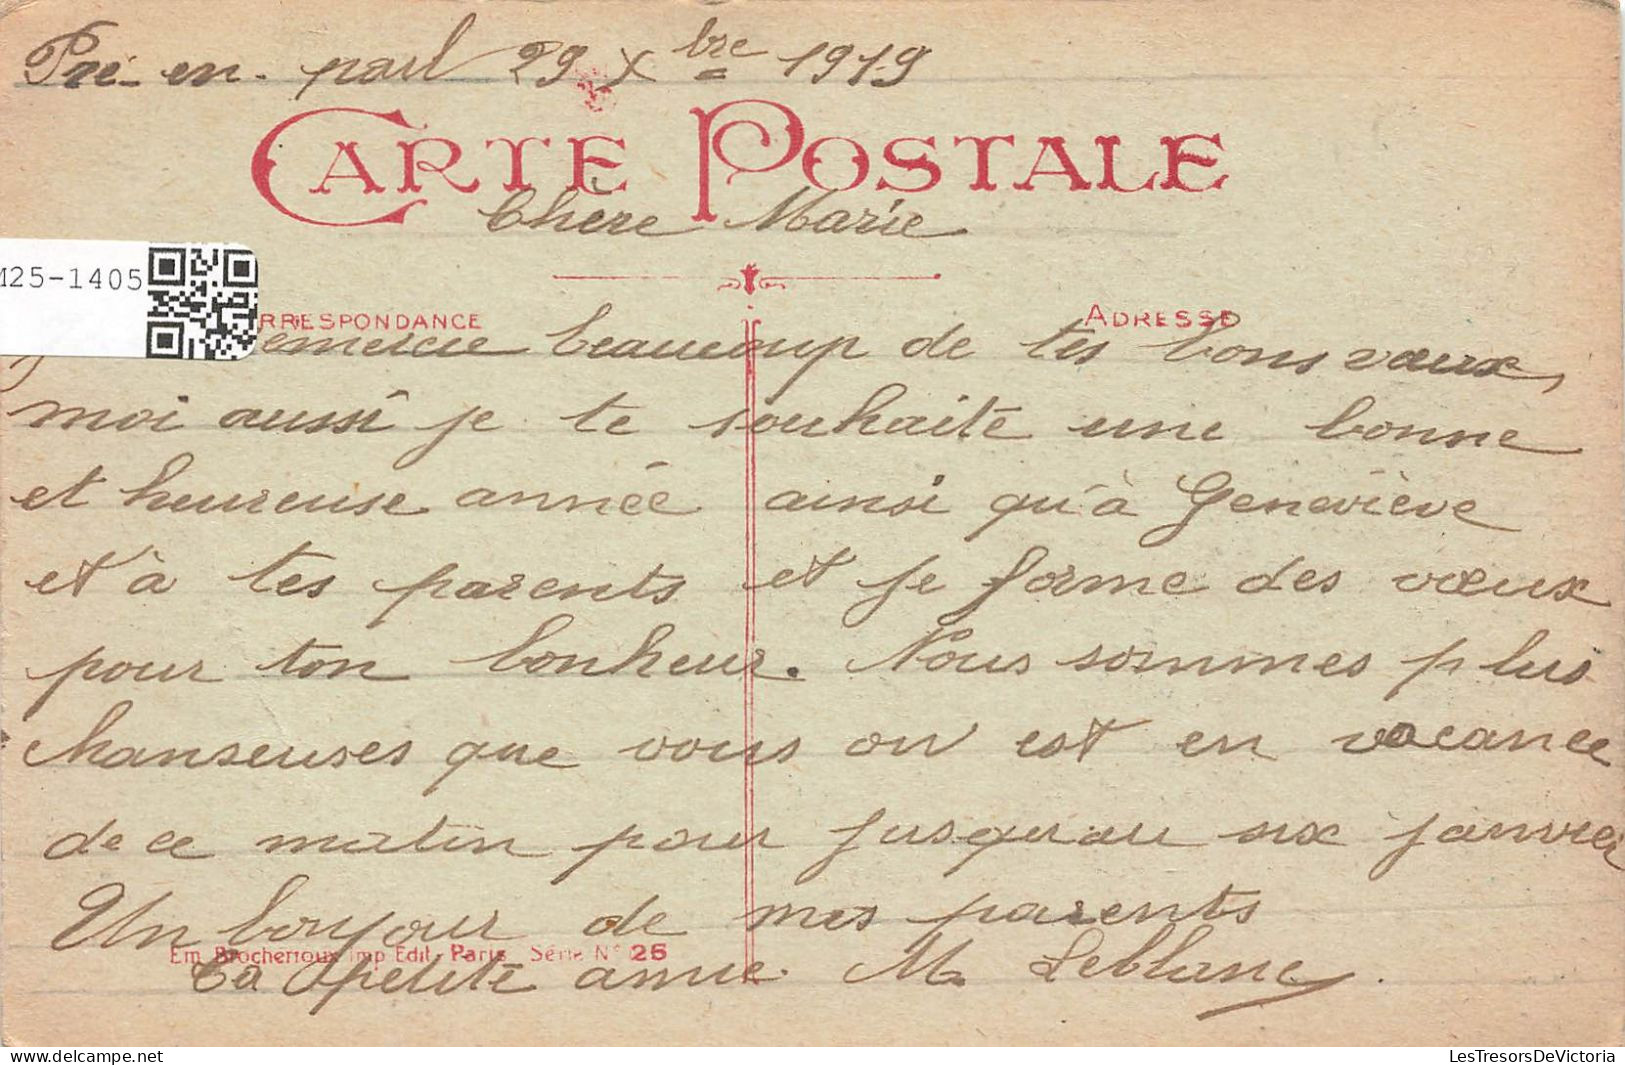 Pré-en-pail 29 Xbre 1919
CARTE POSTALE
Chère Marie
M25-1405
RRESPONDANCE
ADRESSE
emercie beaucoup de tes bons vœux,
moi aussi je te souhaite une bonne
et heureuse année ainsi qu'à Geneviève
et à tes parents et je forme des vœux
pour ton bonheur. Nous sommes plus
chanseuses que vous on est en vacance
de ce matin pour jusqu'au six janvier
Un bonjour de mes parents
Em. Brocherioux Imp. Edit. Paris Série N° 25
Ta petite amie M. Leblanc.
LesTresorsDeVictoria